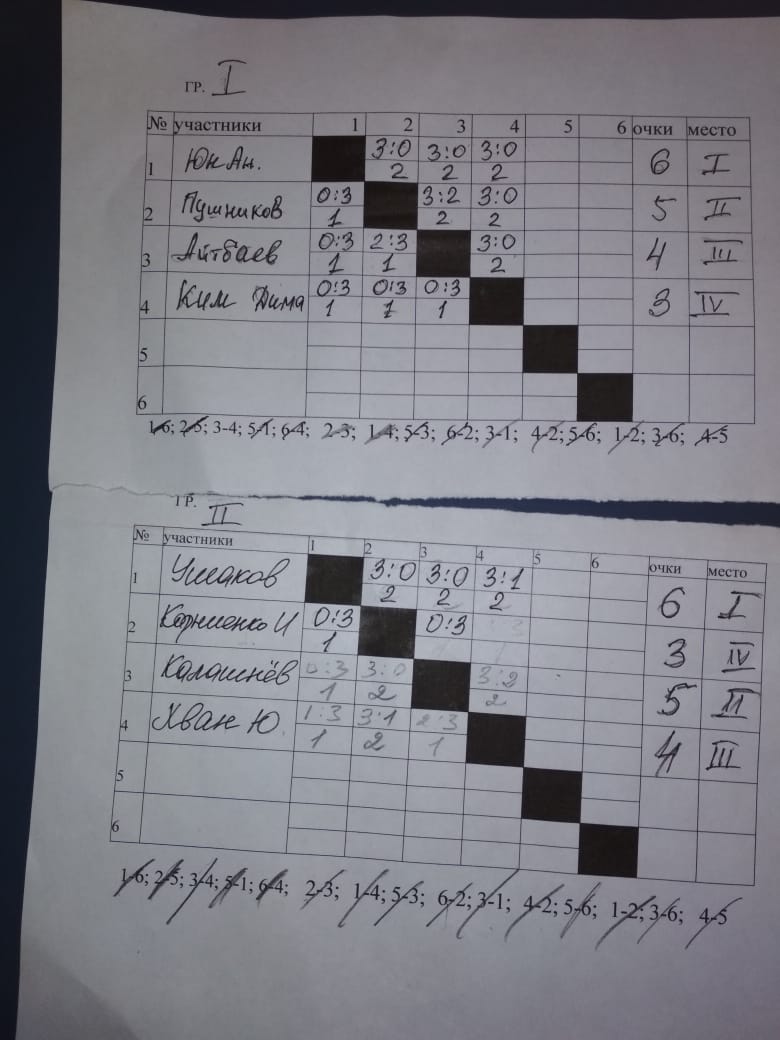 ГР. I
№ участники 1 2 3 4 5 6 очки место
1 Юн Ан. 3:0 3:0 3:0 6 I
2 2 2
2 Пушников 0:3 3:2 3:0 5 II
1 2 2
3 Айтбаев 0:3 2:3 3:0 4 III
1 1 2
4 Ким Дима 0:3 0:3 0:3 3 IV
1 1 1
5
6
1-6; 2-5; 3-4; 5-1; 6-4; 2-3; 1-4; 5-3; 6-2; 3-1; 4-2; 5-6; 1-2; 3-6; 4-5
ГР. II
№ участники 1 2 3 4 5 6 очки место
1 Ушаков 3:0 3:0 3:1 6 I
2 2 2
2 Корниенко И 0:3 0:3 3 IV
1
3 Калашнёв 0:3 3:0 3:2 5 II
1 2 2
4 Хван Ю. 1:3 3:1 2:3 4 III
1 2 1
5
6
1-6; 2-5; 3-4; 5-1; 6-4; 2-3; 1-4; 5-3; 6-2; 3-1; 4-2; 5-6; 1-2; 3-6; 4-5